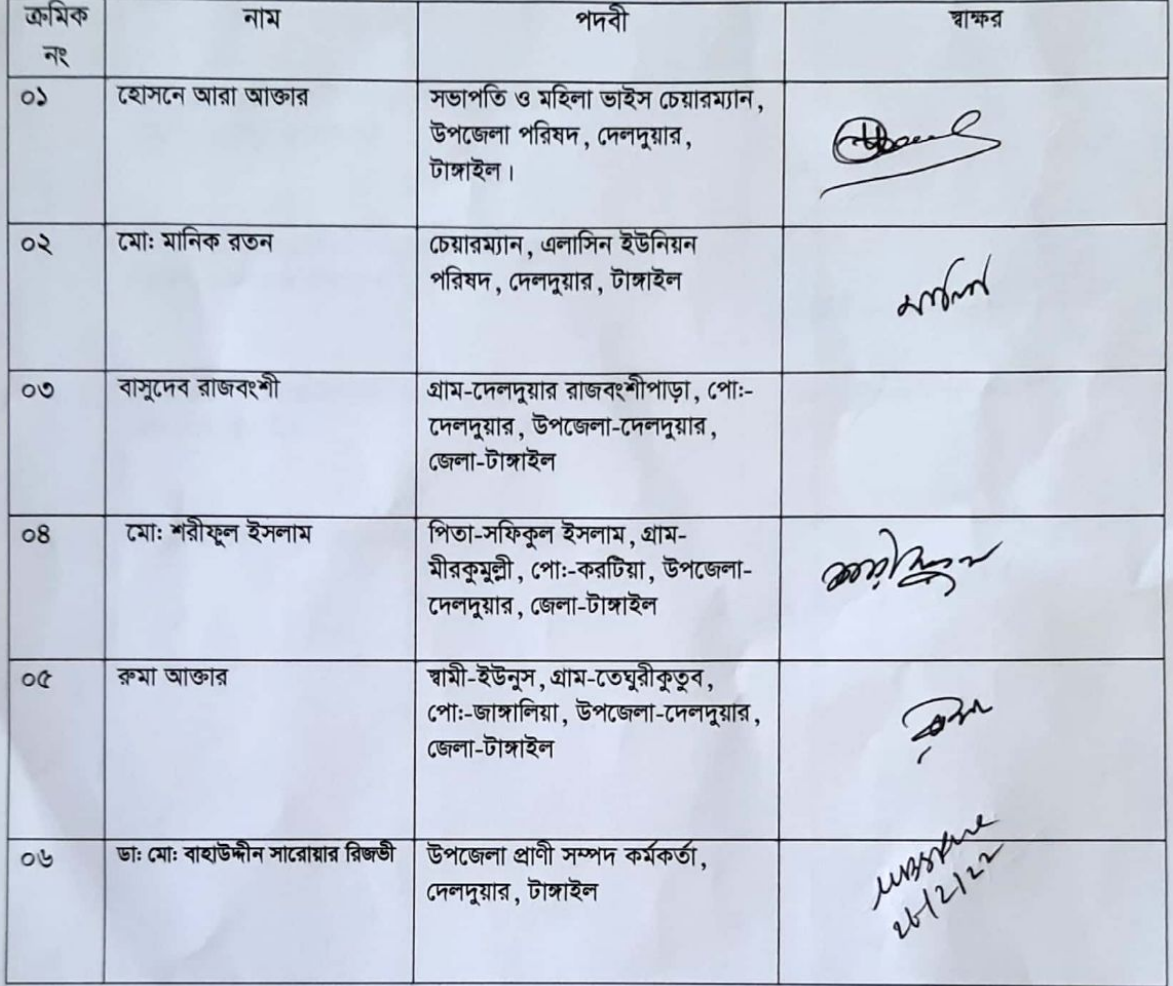 ক্রমিক নং নাম পদবী স্বাক্ষর
০১ হোসনে আরা আক্তার সভাপতি ও মহিলা ভাইস চেয়ারম্যান,
উপজেলা পরিষদ, দেলদুয়ার,
টাঙ্গাইল।
০২ মো: মানিক রতন চেয়ারম্যান, এলাসিন ইউনিয়ন
পরিষদ, দেলদুয়ার, টাঙ্গাইল
০৩ বাসুদেব রাজবংশী গ্রাম-দেলদুয়ার রাজবংশীপাড়া, পো:-
দেলদুয়ার, উপজেলা-দেলদুয়ার,
জেলা-টাঙ্গাইল
০৪ মো: শরীফুল ইসলাম পিতা-সফিকুল ইসলাম, গ্রাম-
মীরকুমুল্লী, পো:-করটিয়া, উপজেলা-
দেলদুয়ার, জেলা-টাঙ্গাইল
০৫ রুমা আক্তার স্বামী-ইউনুস, গ্রাম-তেঘুরীকুতুব,
পো:-জাঙ্গালিয়া, উপজেলা-দেলদুয়ার,
জেলা-টাঙ্গাইল
রুমা
০৬ ডা: মো: বাহাউদ্দীন সারোয়ার রিজভী উপজেলা প্রাণী সম্পদ কর্মকর্তা,
দেলদুয়ার, টাঙ্গাইল